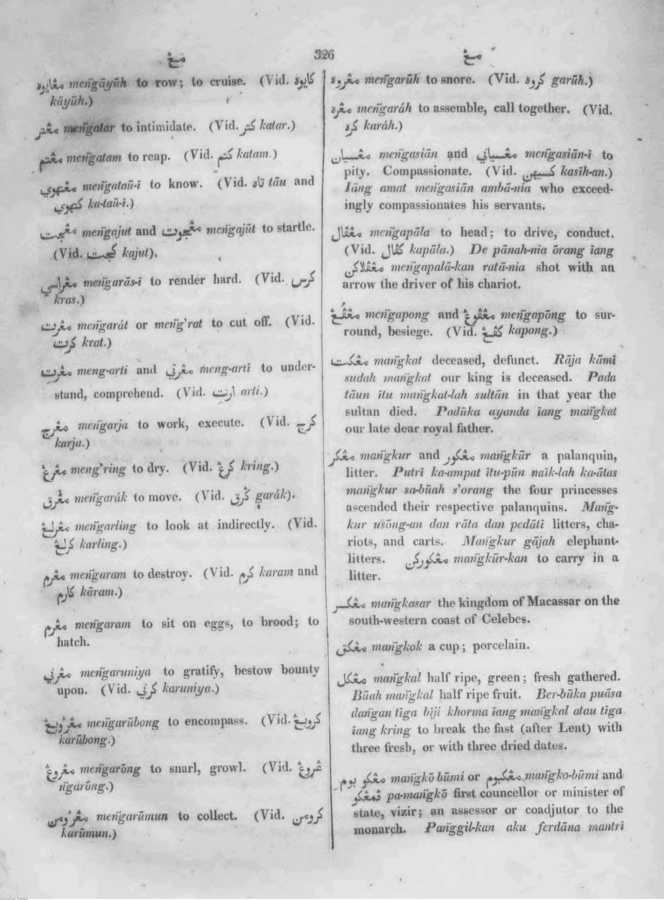 مغ 326 مغ
مغايوه men͠gāyūh to row; to cruise. (Vid. كايوه
kāyūh.)
مغتر men͠gatar to intimidate. (Vid. كتر katar.)
مغتم men͠gatam to reap. (Vid. كتم katam.)
مغتهوي men͠gataū-i to know. (Vid. تاه tāu and
كتهوي ka-taū-i.)
مغجت men͠gajut and مغجوت men͠gajūt to startle.
(Vid. كجت kajut).
مغراسي men͠garās-i to render hard. (Vid. كرس
kras.)
مغرت men͠garāt or men͠g'rat to cut off. (Vid.
كرت krat.)
مغرت meng-arti and مغرتي meng-arti to under-
stand, comprehend. (Vid. ارت arti.)
مغرج men͠garja to work, execute. (Vid. كرج
karja.)
مغرغ men͠g'ring to dry. (Vid. كرغ kring.)
مغرق men͠garák to move. (Vid. كرق garák).
مغرلغ men͠garling to look at indirectly. (Vid.
كرلغ karling.)
مغرم men͠garam to destroy. (Vid. كرم karam and
كارم kāram.)
مغرم men͠garam to sit on eggs, to brood; to
hatch.
مغرني men͠garuniya to gratify, bestow bounty
upon. (Vid. كرني karuniya.)
مغروبغ men͠garūbong to encompass. (Vid. كروبغ
karūbong.)
مغروغ men͠garōng to snarl, growl. (Vid. غروغ
n͠garōng.)
مغرومن men͠garūmun to collect. (Vid. كرومن
karūmun.)
مغروه men͠garūh to snore. (Vid. كروه garūh.)
مغره men͠garáh to assemble, call together. (Vid.
كره karáh.)
مغسيان men͠gasiān and مغسياني men͠gasiān-i to
pity. Compassionate. (Vid. كسيهن kasīh-an.)
Īāng amat men͠gasiān ambā-nia who exceed-
ingly compassionates his servants.
مغفال men͠gapāla to head; to drive, conduct.
(Vid. كفال kapāla.) De pānah-nia ōrang īang
مغفلاكن men͠gapalā-kan ratā-nia shot with an
arrow the driver of his chariot.
مغفغ men͠gapong and مغفوغ men͠gapōng to sur-
round, besiege. (Vid. كفغ kapong.)
مغكت man͠gkat deceased, defunct. Rāja kāmi
sudah man͠gkat our king is deceased. Pada
tāun ītu man͠gkat-lah sultān in that year the
sultan died. Padūka ayanda īang man͠gkat
our late dear royal father.
مغكر man͠gkur and مغكور man͠gkūr a palanquin,
litter. Putri ka-ampat ītu-pūn naik-lah ka-ātas
man͠gkur sa-būah s'orang the four princesses
ascended their respective palanquins. Man͠g-
kur ūsōng-an dan rāta dan pedāti litters, cha-
riots, and carts. Man͠gkur gājah elephant-
litters. مغكوركن man͠gkūr-kan to carry in a
litter.
مغكسر man͠gkasar the kingdom of Macassar on the
south-western coast of Celebes.
مغكق man͠gkok a cup; porcelain.
مغكل man͠gkal half ripe, green; fresh gathered.
Būah man͠gkal half ripe fruit. Ber-būka puāsa
dan͠gan tīga bīji khorma īang man͠gkal atau tīga
īang kring to break the fast (after Lent) with
three fresh, or with three dried dates.
مغكو بوم man͠gkō būmi or مغكبوم man͠gko-būmi and
ڤمغكو pa-man͠gkō first councellor or minister of
state, vizir; an assessor or coadjutor to the
monarch. Pan͠ggil-kan aku ferdāna mantri